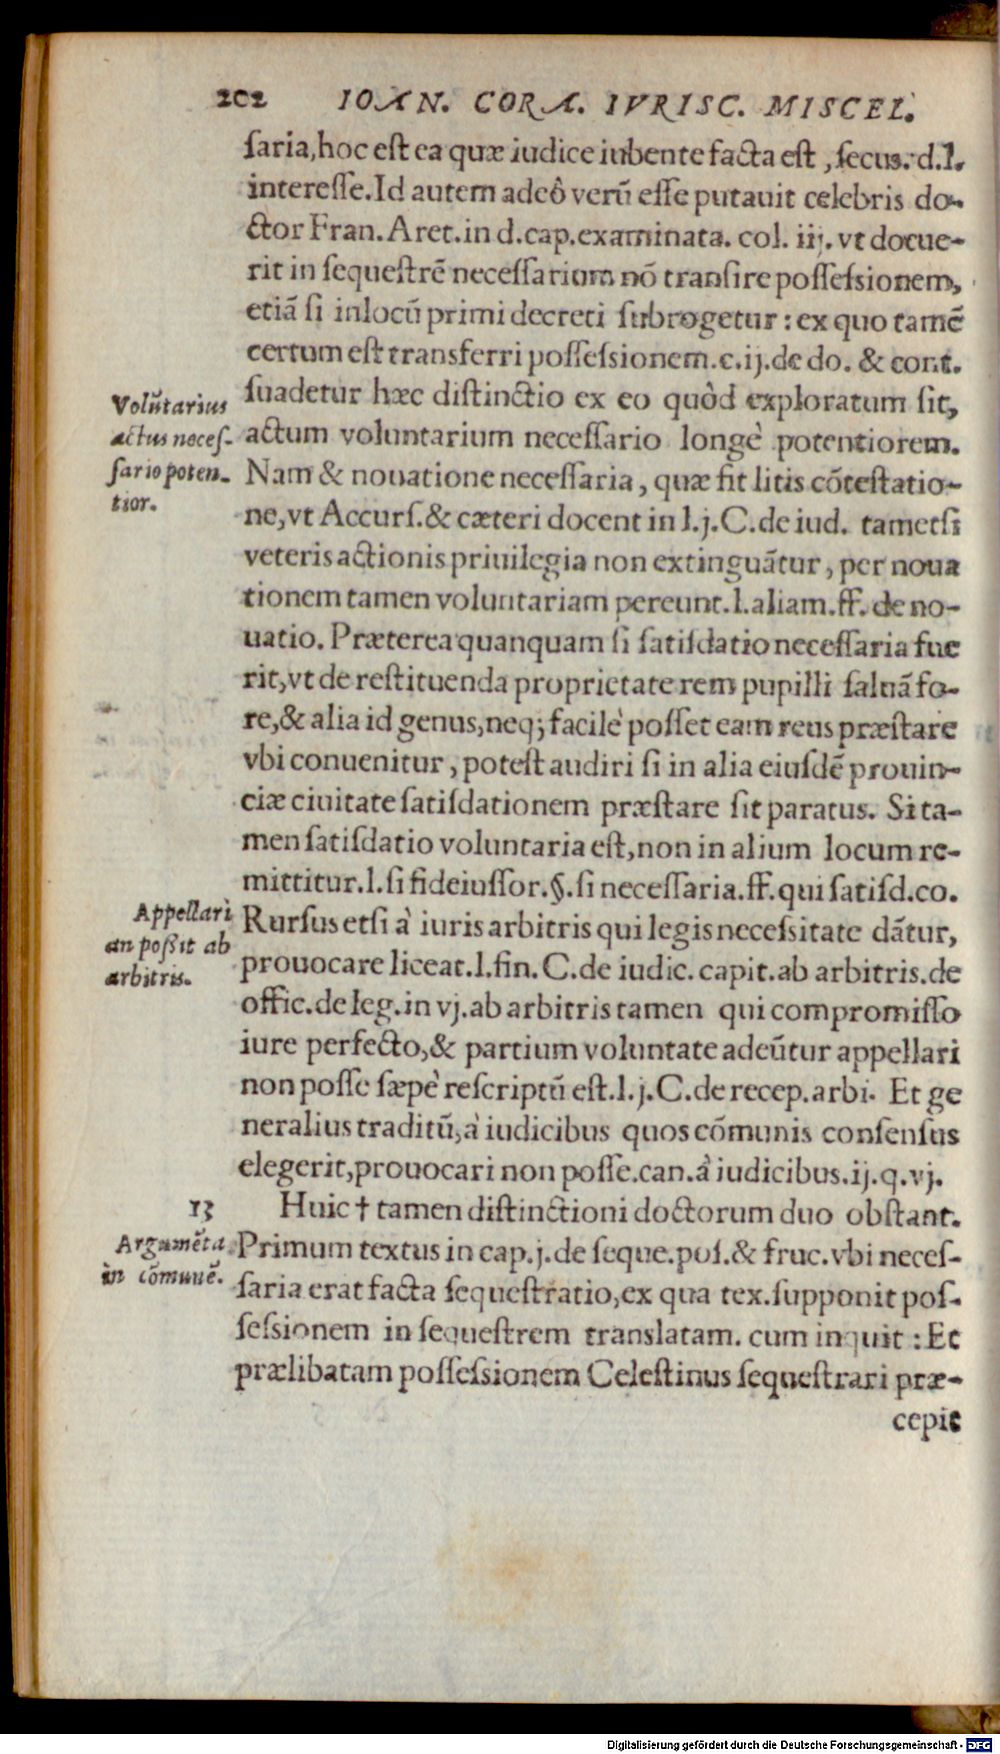 202 IOAN. CORA. IVRISC. MISCEL.
ſaria, hoc eſt ea quæ iudice iubente facta eſt, ſecus. d.l.
intereſſe. Id autem adeô verũ eſſe putauit celebris do-
ctor Fran. Aret. in d. cap. examinata. col. iij. vt docue-
rit in ſequeſtrẽ neceſſarium nõ tranſire poſſeſsionem,
etiã ſi in locũ primi decreti ſubrogetur: ex quo tamẽ
certum eſt transferri poſſeſsionem. c. ij. de do. & cont.
Volũtarius
actus neceſ-
ſario poten-
tior.
ſuadetur hæc diſtinctio ex eo quòd exploratum ſit,
actum voluntarium neceſſario longè potentiorem.
Nam & nouatione neceſſaria, quæ fit litis cõteſtatio-
ne, vt Accurſ. & cæteri docent in l. j. C. de iud. tametſi
veteris actionis priuilegia non extinguãtur, per noua
tionem tamen voluntariam pereunt. l. aliam. ff. de no-
uatio. Præterea quanquam ſi ſatiſdatio neceſſaria fue
rit, vt de reſtituenda proprietate rem pupilli ſaluã fo-
re, & alia id genus, neq; facilè poſſet eam reus præſtare
vbi conuenitur, poteſt audiri ſi in alia eiuſdẽ prouin-
ciæ ciuitate ſatiſdationem præſtare ſit paratus. Si ta-
men ſatiſdatio voluntaria eſt, non in alium locum re-
mittitur. l. ſi fideiuſſor. §. ſi neceſſaria. ff. qui ſatiſd. co.
Appellari
an poßit ab
arbitris.
Rurſus etſi à iuris arbitris qui legis neceſsitate dãtur,
prouocare liceat. l. fin. C. de iudic. capit. ab arbitris. de
offic. de leg. in vj. ab arbitris tamen qui compromiſſo
iure perfecto, & partium voluntate adeũtur appellari
non poſſe ſæpè reſcriptũ eſt. l. j. C. de recep. arbi. Et ge
neralius traditũ, à iudicibus quos cõmunis conſenſus
elegerit, prouocari non poſſe. can. à iudicibus. ij. q. vj.
13
Argumẽta
in cõmunẽ.
Huic † tamen diſtinctioni doctorum duo obſtant.
Primum textus in cap. j. de ſeque. poſ. & fruc. vbi neceſ-
ſaria erat facta ſequeſtratio, ex qua tex. ſupponit poſ-
ſeſsionem in ſequeſtrem translatam. cum inquit: Et
prælibatam poſſeſsionem Celeſtinus ſequeſtrari præ-
cepit
Digitalisierung gefördert durch die Deutsche Forschungsgemeinschaft - DFG